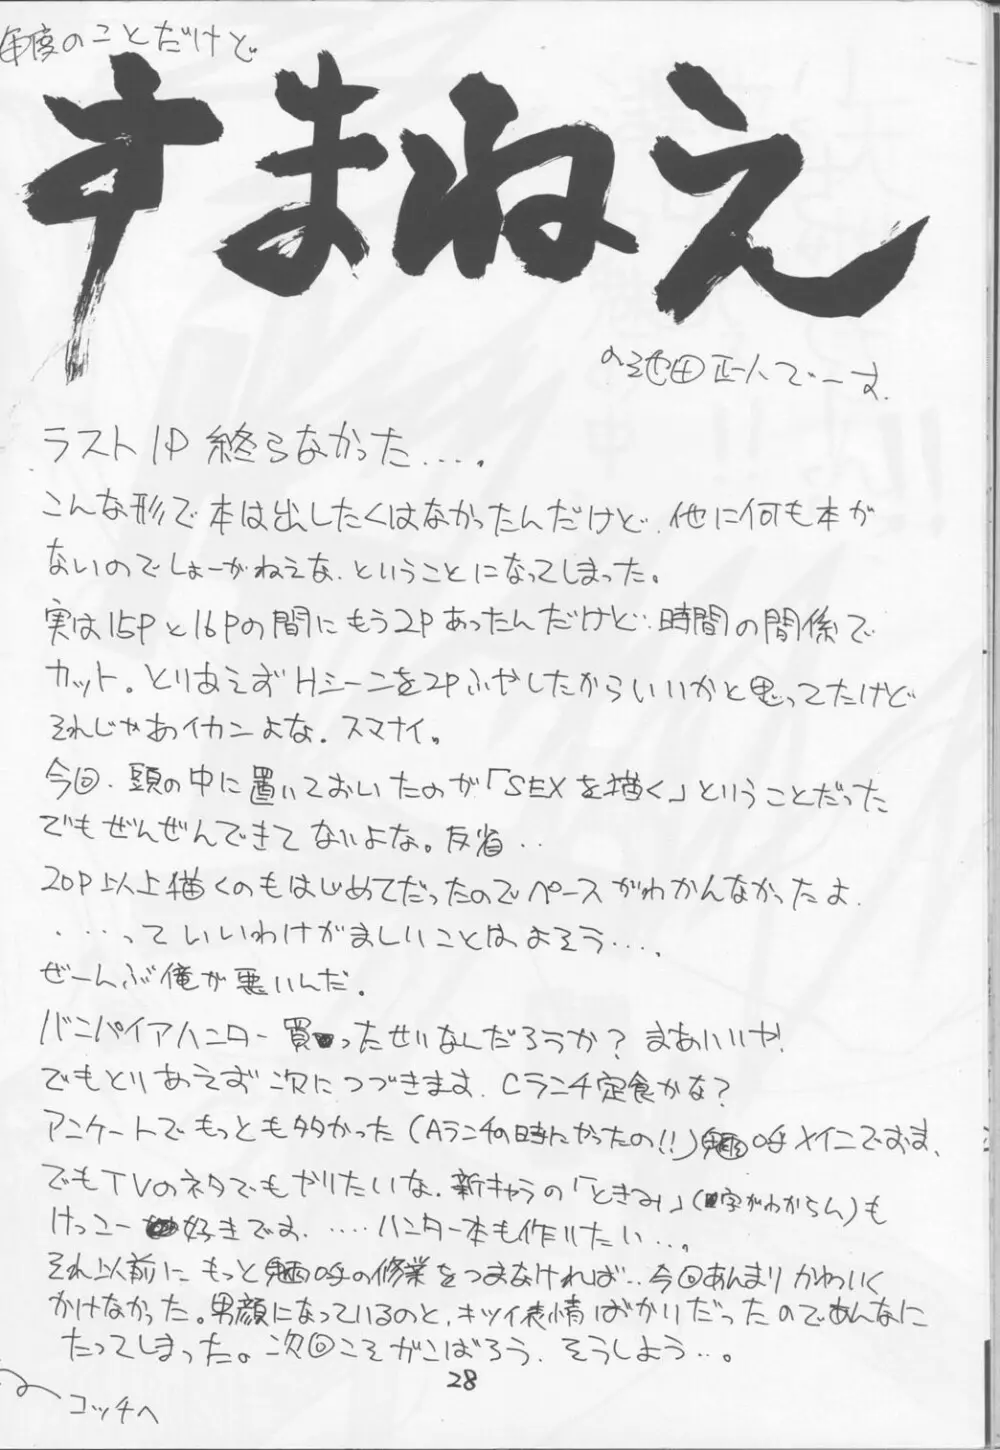 毎度のことだけど
すまねえ
の池田正人でーす.
ラスト1P 終らなかった....。
こんな形で本は出したくはなかったんだけど、他に何も本が
ないのでしょーがねえな、ということになってしまった。
実は15Pと16Pの間にもう2Pあったんだけど、時間の関係で
カット。とりあえずHシーンを2Pふやしたからいいかと思ってたけど
それじゃあイカンよな。スマナイ。
今回、頭の中に置いておいたのが「SEXを描く」ということだった
でもぜんぜんできてないよな。反省・・
20P以上描くのもはじめてだったのでペースがわかんなかったよ.
・・・・っていいわけがましいことはよそう・・・.
ぜーんぶ俺が悪いんだ.
バンパイアハンター買ったせいなんだろうか?まあいいや!
でもとりあえず次につづきます. Cランチ定食かな?
アンケートでもっとも多かった(Aランチの時にかったの!!)魎呼メインでおます、
でもTVのネタでもやりたいな、新キャラの「ときみ」(字がわからん)も
けっこー好きです. ・・・・ハンター本も作りたい・・・。
それ以前にもっと魎呼の修業をつまなければ・・今回あんまりかわいく
かけなかった。男顔になっているのと、キツイ表情ばかりだったのであんなに
たってしまった。次回こそがんばろう、そうしよう・・。
28
コッチへ